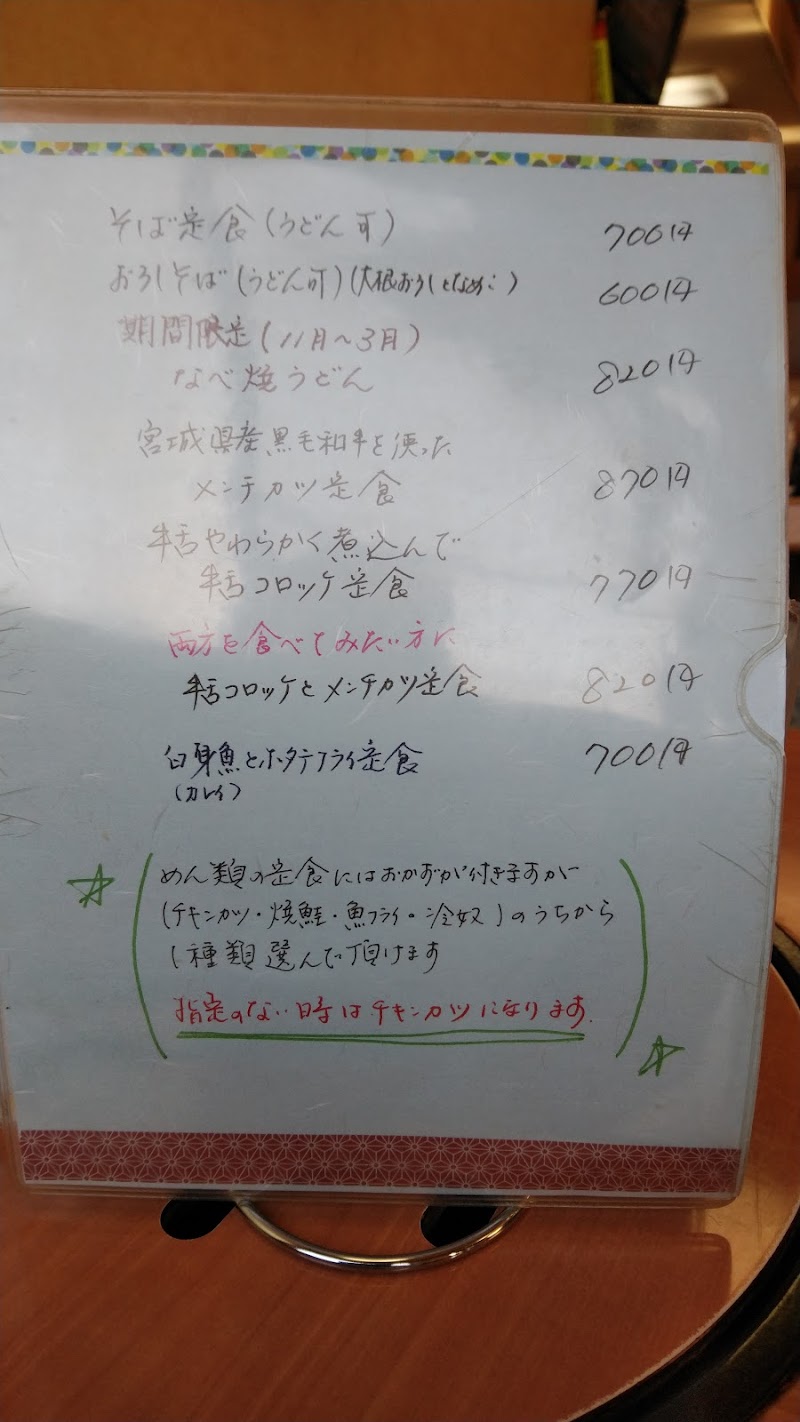 そば定食(うどん可) 700円
おろしそば(うどん可)(大根おろしとなめこ) 600円
期間限定(11月～3月)
なべ焼うどん 820円
宮城県産黒毛和牛を使った
メンチカツ定食 870円
牛舌やわらかく煮込んで
牛舌コロッケ定食 770円
両方を食べてみたい方に
牛舌コロッケとメンチカツ定食 820円
白身魚とホタテフライ定食 700円
(カレイ)
めん類の定食にはおかずが付きますが
(チキンカツ・焼鮭・魚フライ・冷奴)のうちから
1種類選んで頂けます
指定のない時はチキンカツになります.